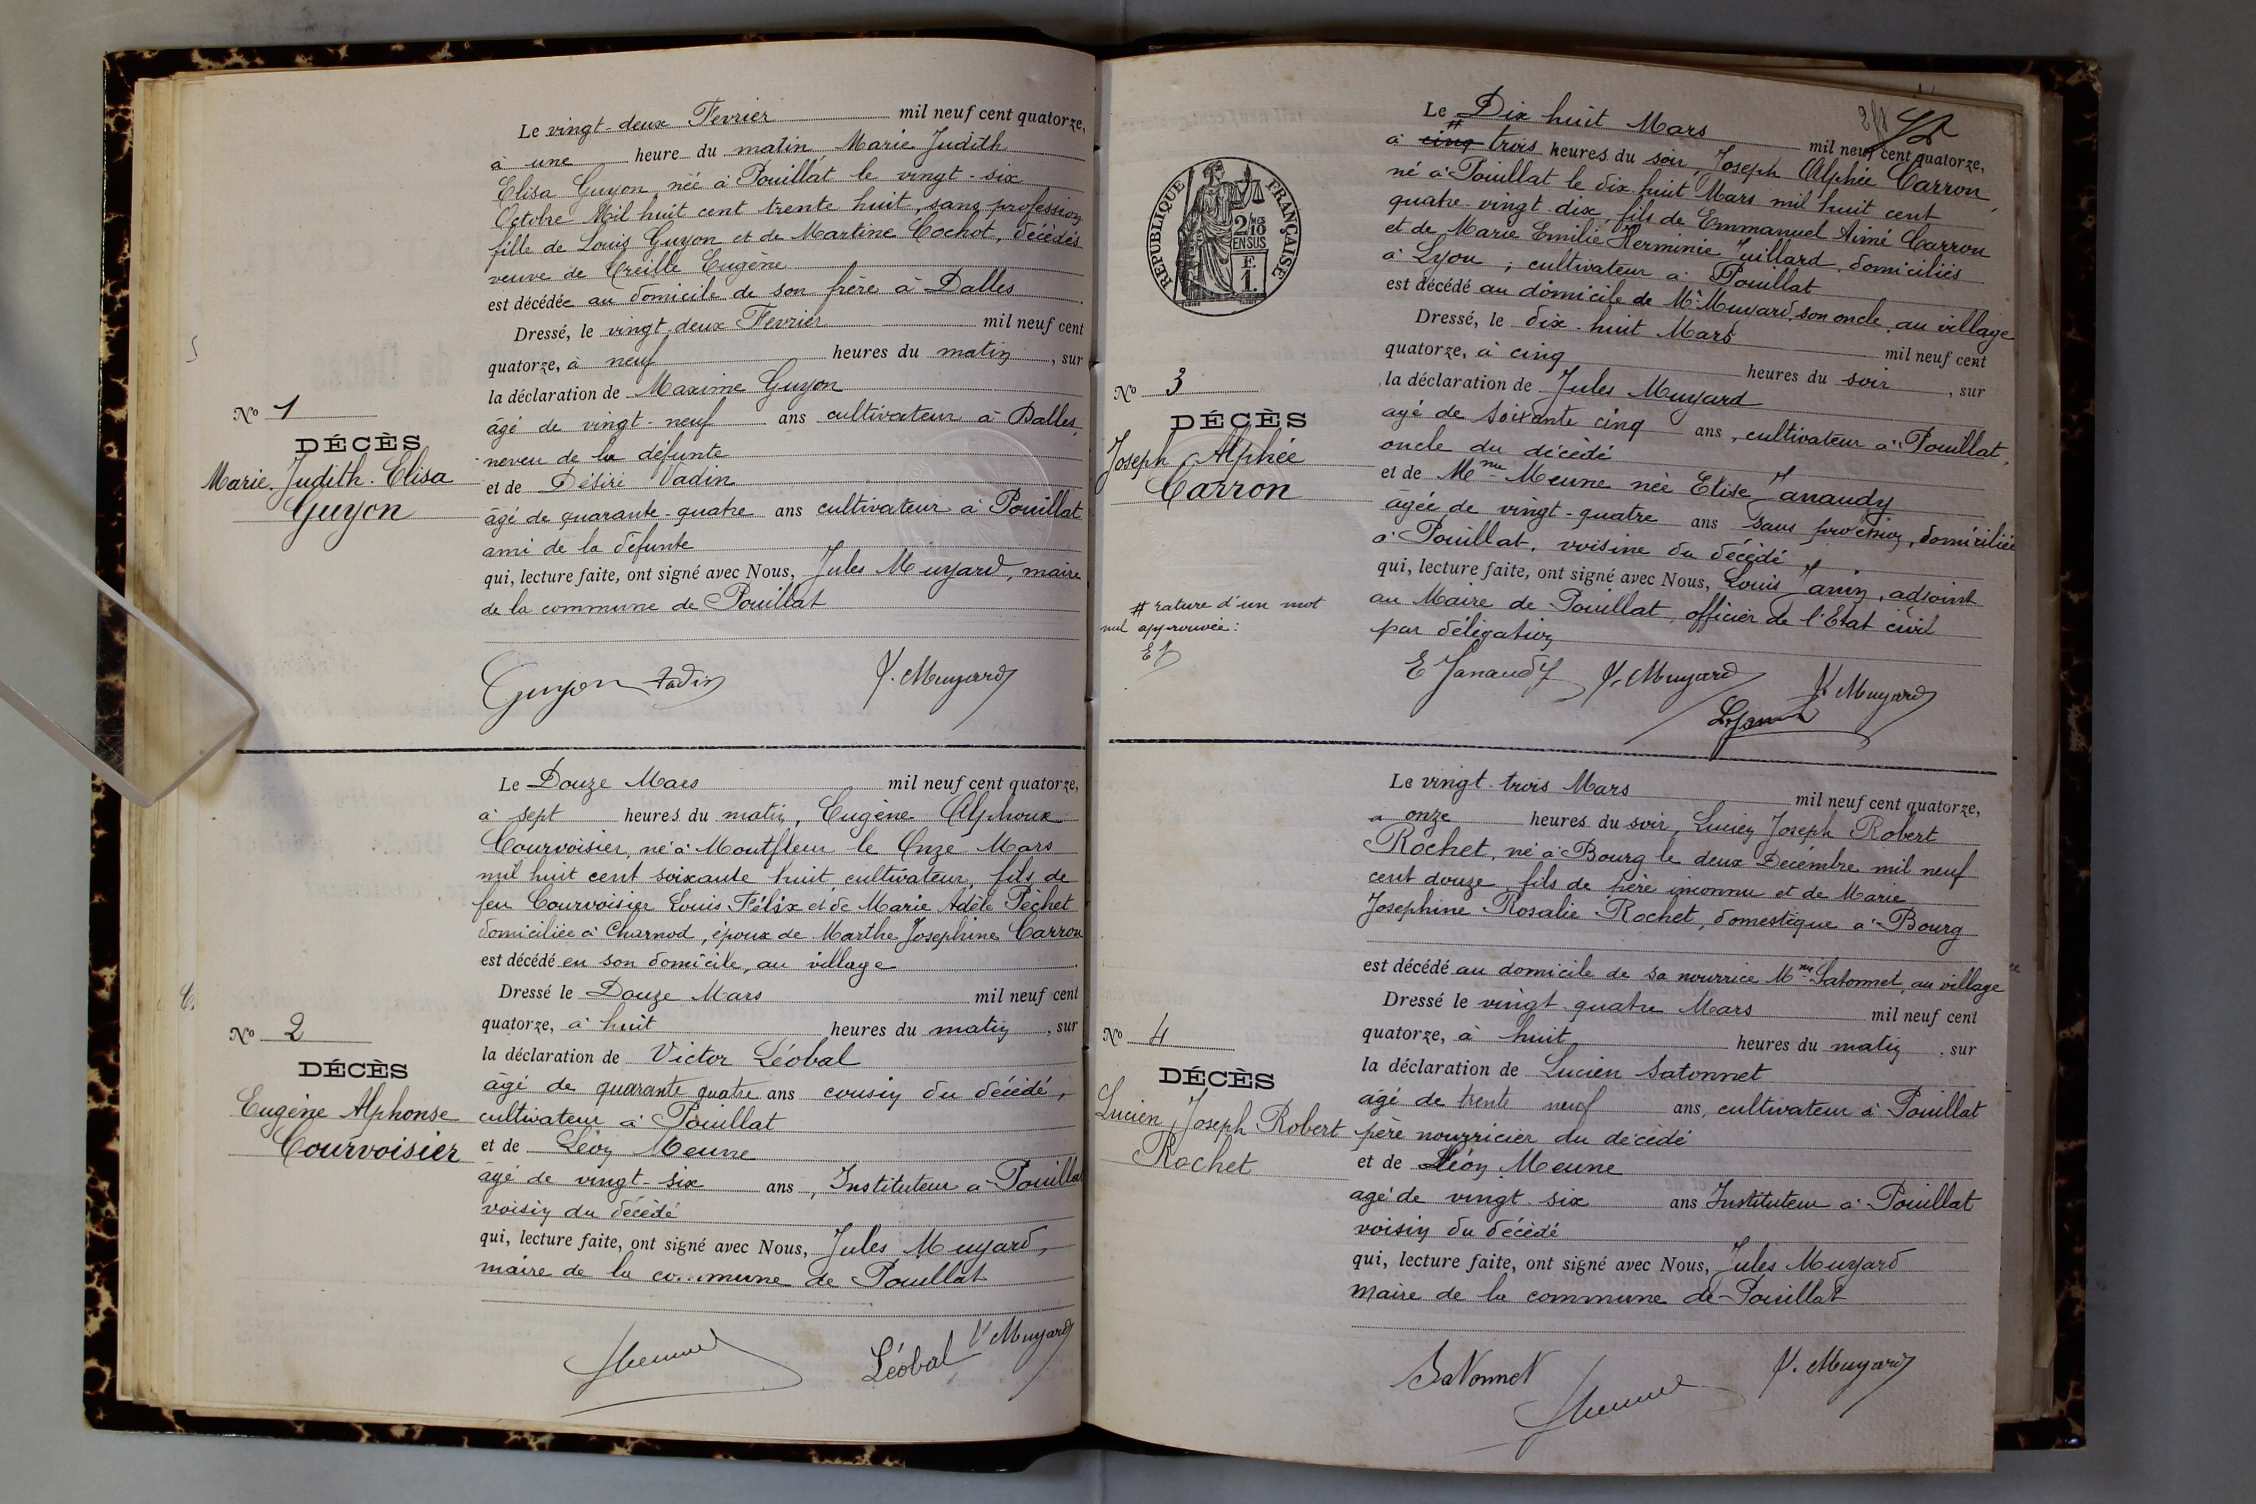 Le vingt-deux Fevrier mil neuf cent quatorze,
à une heure du matin Marie Judith
Elisa Guyon, née à Pouillat le vingt-six
Octobre Mil huit cent trente huit, sans profession
fille de Louis Guyon et de Martine Cochot, décédés
veuve de Creille Eugène
est décédée au domicile de son frère à Dalles
Dressé, le vingt deux Fevrier mil neuf cent
quatorze, à neuf heures du matin, sur
la déclaration de Maxime Guyon
âgé de vingt-neuf ans cultivateur à Dalles,
neveu de la défunte
et de Désiré Vadin
âgé de quarante-quatre ans cultivateur à Pouillat
ami de la défunte
qui, lecture faite, ont signé avec Nous, Jules Muyard, maire
de la commune de Pouillat
No 1
DÉCÈS
Marie Judith Elisa
Guyon
Guyon Vadin J. Muyard
Le Douze Mars mil neuf cent quatorze,
à sept heures du matin, Eugène Alphonse
Courvoisier, né à Montfleur le Onze Mars
mil huit cent soixante huit cultivateur, fils de
feu Courvoisier Louis Félix et de Marie Adèle Pêchet
domiciliée à Charnod, époux de Marthe Josephine Carron
est décédé en son domicile, au village
Dressé le Douze Mars mil neuf cent
quatorze, à huit heures du matin, sur
la déclaration de Victor Léobal
âgé de quarante quatre ans cousin du décédé,
cultivateur à Pouillat
et de Léon Meune
âgé de vingt-six ans, Instituteur à Pouillat
voisin du décédé
qui, lecture faite, ont signé avec Nous, Jules Muyard,
maire de la commune de Pouillat
No 2
DÉCÈS
Eugène Alphonse
Courvoisier
Meune Léobal J. Muyard
RÉPUBLIQUE FRANÇAISE
2/10
EN SUS
F.
1.
Le Dix huit Mars mil neuf cent quatorze,
à # cinq trois heures du soir, Joseph Alphée Carron,
né à Pouillat le dix huit Mars mil huit cent
quatre-vingt-dix, fils de Emmanuel Aimé Carron
et de Marie Emilie Herminie Juillard, domiciliés
à Lyon ; cultivateur à Pouillat
est décédé au domicile de Mr Muyard, son oncle, au village
Dressé, le dix-huit Mars mil neuf cent
quatorze, à cinq heures du soir, sur
la déclaration de Jules Muyard
agé de soixante cinq ans, cultivateur à Pouillat,
oncle du décédé
et de Mme Meune née Elise Janaudy
âgée de vingt-quatre ans sans profession, domiciliée
à Pouillat, voisine du décédé,
qui, lecture faite, ont signé avec Nous, Louis Janin, adjoint
au Maire de Pouillat, officier de l'Etat civil
par délégation
No 3
DÉCÈS
Joseph Alphée
Carron
# rature d'un mot
nul approuvée :
EJ
E Janaudy J. Muyard J. Muyard
L Janin
Le vingt-trois Mars mil neuf cent quatorze,
a onze heures du soir, Lucien Joseph Robert
Rochet, né à Bourg le deux Décembre mil neuf
cent douze, fils de père inconnu et de Marie
Josephine Rosalie Rochet, domestique à Bourg
est décédé au domicile de sa nourrice Mme Satonnet, au village
Dressé le vingt-quatre Mars mil neuf cent
quatorze, à huit heures du matin, sur
la déclaration de Lucien Satonnet
agé de trente neuf ans, cultivateur à Pouillat
père nourricier du décédé
et de Léon Meune
agé de vingt-six ans Instituteur à Pouillat
voisin du décédé
qui, lecture faite, ont signé avec Nous, Jules Muyard
maire de la commune de Pouillat
No 4
DÉCÈS
Lucien Joseph Robert
Rochet
Satonnet Meune J. Muyard